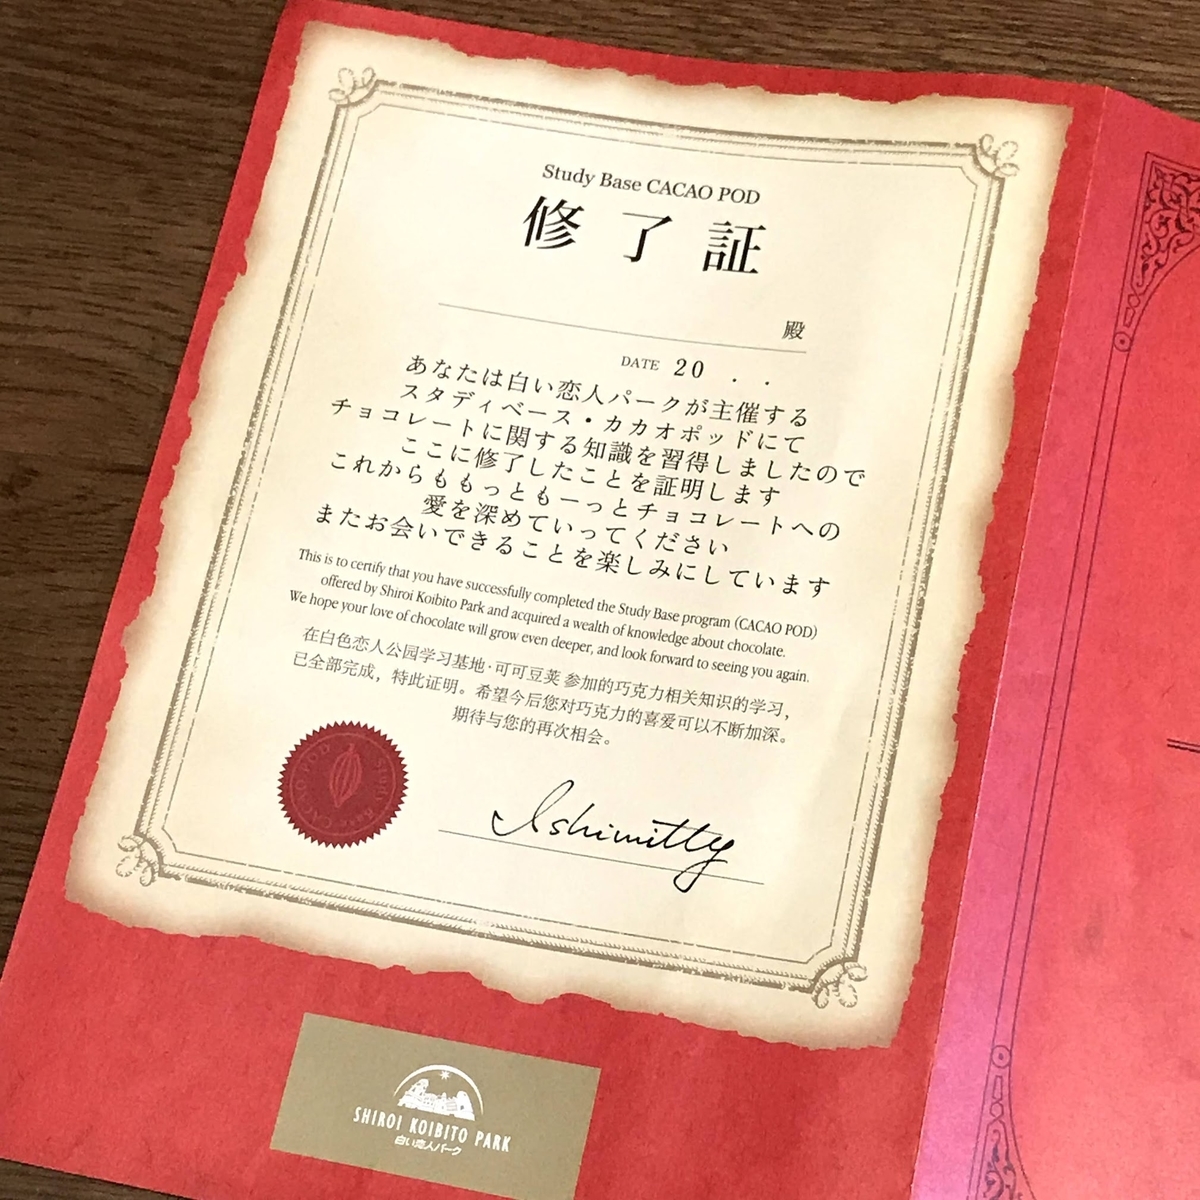 Study Base CACAO POD
修了証
殿
DATE 20 . .
あなたは白い恋人パークが主催する
スタディベース・カカオポッドにて
チョコレートに関する知識を習得しましたので
ここに修了したことを証明します
これからももっともーっとチョコレートへの
愛を深めていってください
またお会いできることを楽しみにしています
This is to certify that you have successfully completed the Study Base program (CACAO POD)
offered by Shiroi Koibito Park and acquired a wealth of knowledge about chocolate.
We hope your love of chocolate will grow even deeper, and look forward to seeing you again.
在白色恋人公园学习基地·可可豆荚 参加的巧克力相关知识的学习，
已全部完成，特此证明。希望今后您对巧克力的喜爱可以不断加深。
期待与您的再次相会。
CACAO POD
Ishimitty
SHIROI KOIBITO PARK
白い恋人パーク